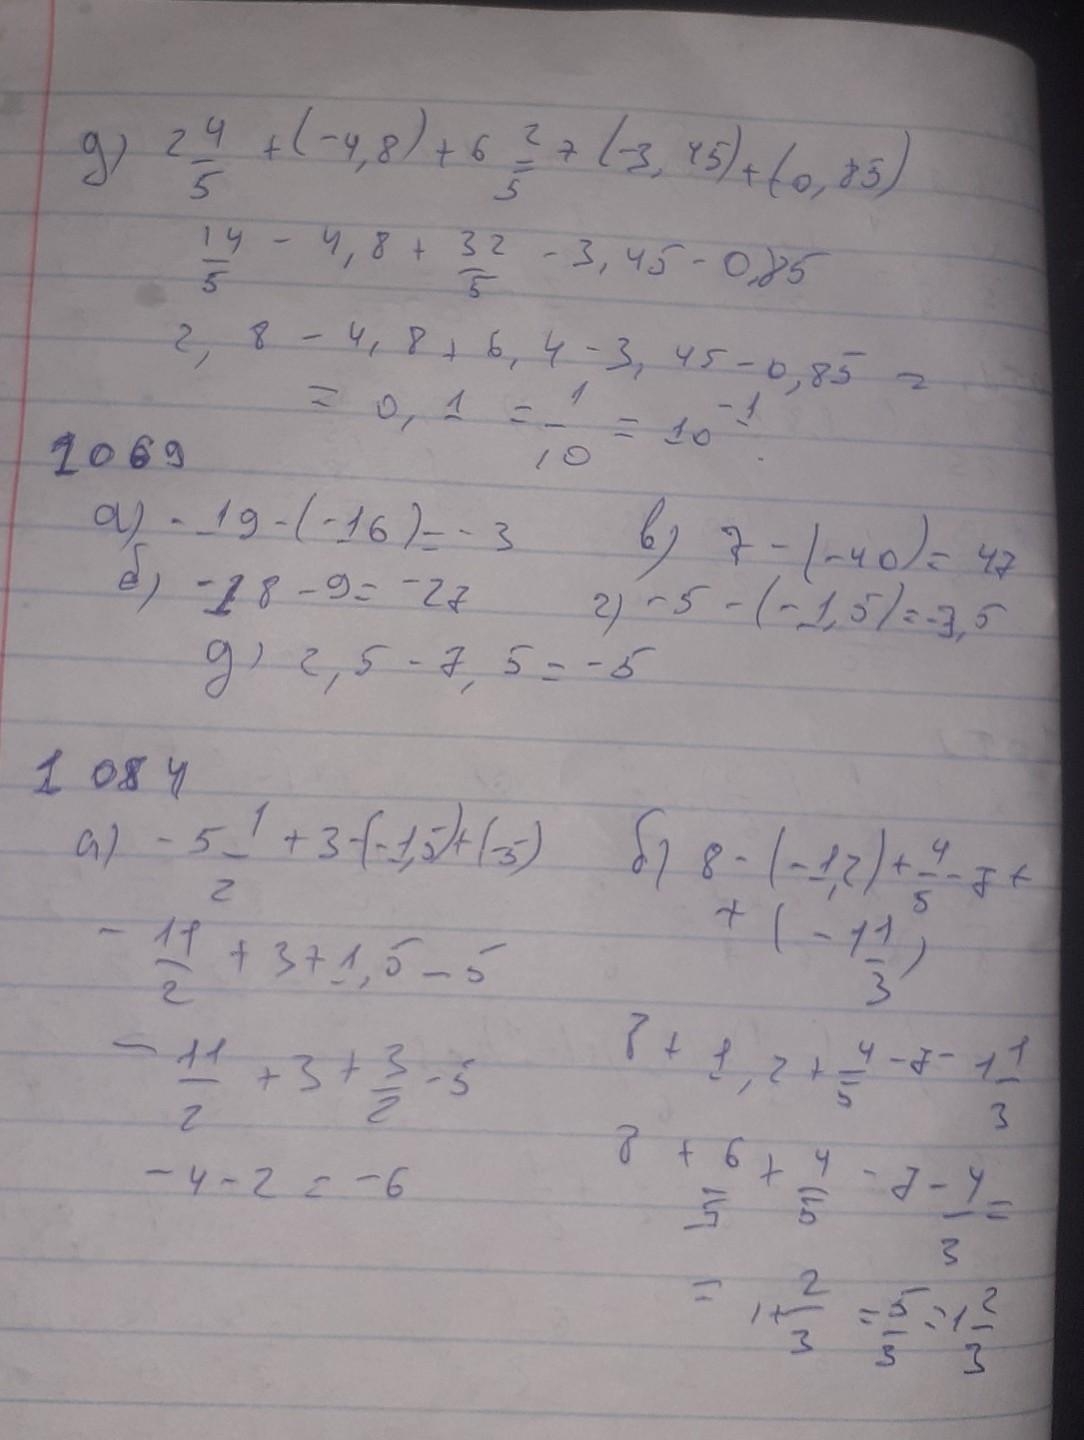 д) 2 4/5 + (-4,8) + 6 2/5 + (-3,45) + (-0,85)
14/5 - 4,8 + 32/5 - 3,45 - 0,85
2,8 - 4,8 + 6,4 - 3,45 - 0,85 =
= 0,1 = 1/10 = 10^-1.
1069
а) -19-(-16)=-3 в) 7-(-40)=47
б) -18-9=-27 г) -5-(-1,5)=-3,5
д) 2,5-7,5=-5
1084
а) -5 1/2 + 3-(-1,5)+(-5) б) 8-(-1,2)+4/5-7+
+(-1 1/3)
-11/2 + 3+1,5-5
8+1,2+4/5-7-1 1/3
-11/2 + 3 + 3/2 - 5
8 + 6/5 + 4/5 - 7 - 4/3 =
-4-2=-6
= 1+2/3 = 5/3 = 1 2/3